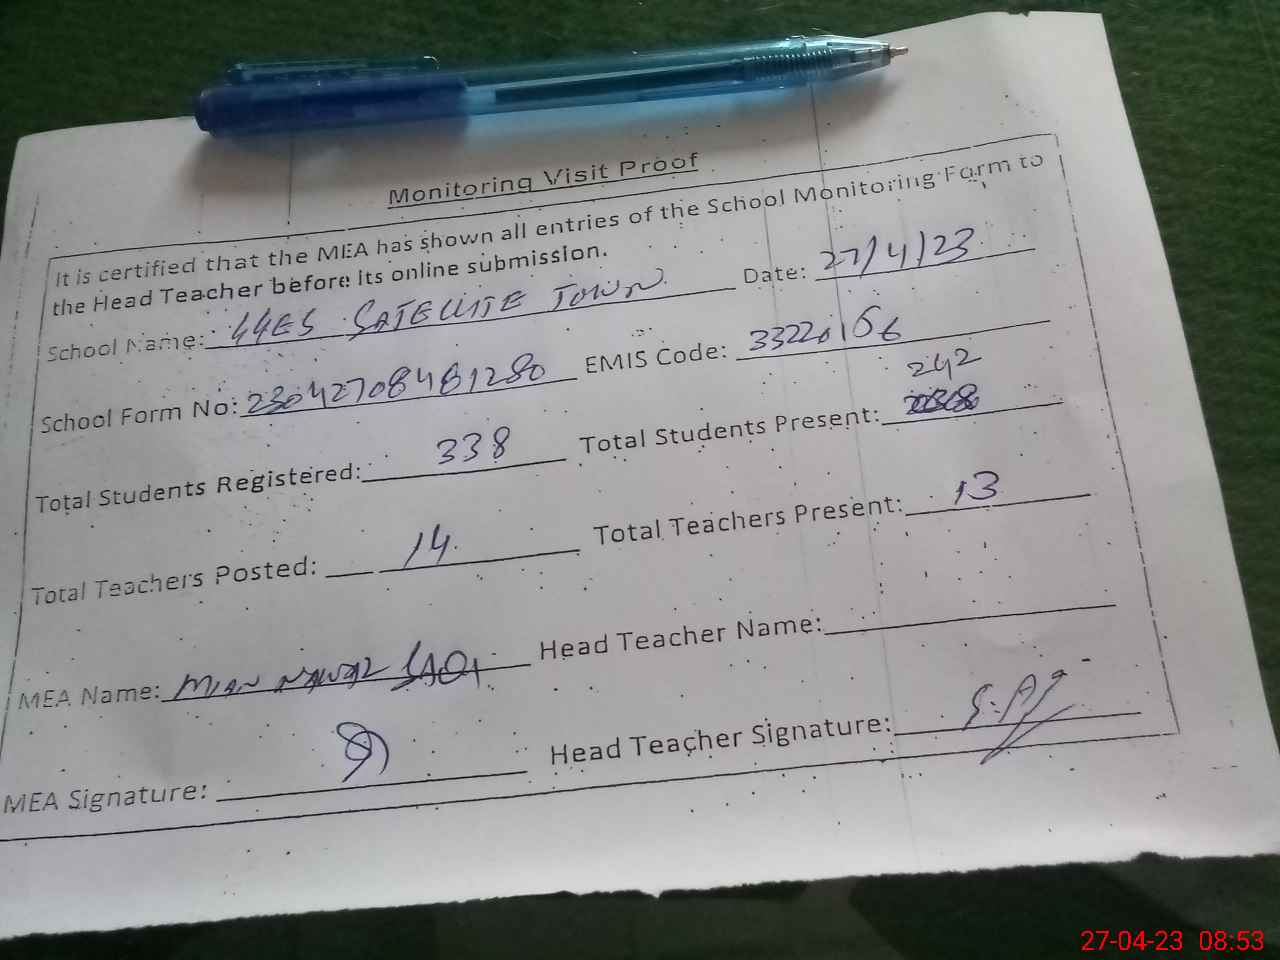 Monitoring Visit Proof
It is certified that the MEA has shown all entries of the School Monitoring Farm to
the Head Teacher before its online submission.
School Name: GGES SATELLITE TOWN Date: 27/4/23
School Form No: EMIS Code: 33220156
Total Students Registered: 338 Total Students Present: 242
Total Teachers Posted: 14 Total Teachers Present: 13
MEA Name: MIAN NAWAZ Head Teacher Name:
MEA Signature: Head Teacher Signature:
27-04-23 08:53